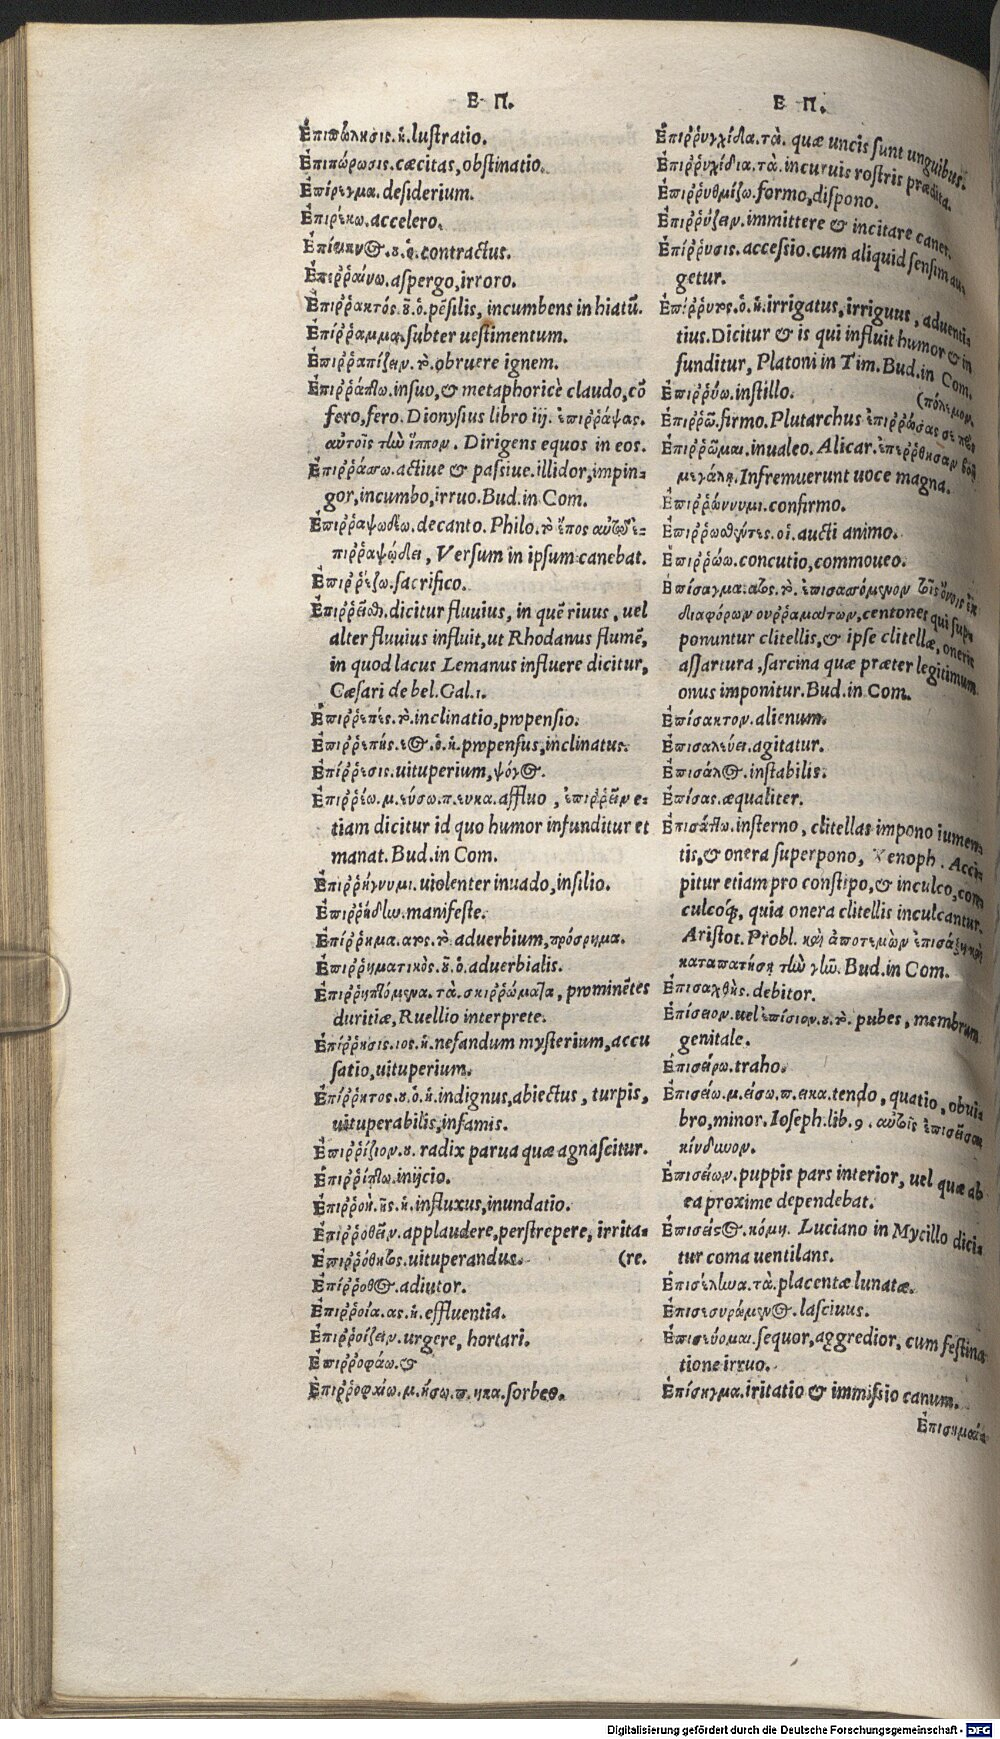 Ε Π.
Ἐπιπώλησις.ἡ.lustratio.
Ἐπιπώρωσις.cæcitas, obstinatio.
Ἐπίρεγμα.desiderium.
Ἐπιρέκω.accelero.
contractus.
Ἐπιῤῥαίνω.aspergo, irroro.
Ἐπιῤῥακτός.οῦ.ὁ.pēsilis, incumbens in hiatū.
Ἐπίῤῥαμμα.subter uestimentum.
Ἐπιῤῥαπίζειν.τὸ.obruere ignem.
Ἐπιῤῥάπτω.insuo, & metaphoricè claudo, cō
fero, fero. Dionysius libro iij. ἐπιῤῥάψας.
αὐτοῖς τὼ ἵππον. Dirigens equos in eos.
Ἐπιῤῥάσσω.actiue & passiue.illidor, impin=
gor, incumbo, irruo. Bud. in Com.
Ἐπιῤῥαψωδέω.decanto. Philo. τὸ ἔπος αὐτῷ ἐ=
πιῤῥαψῴδει, Versum in ipsum canebat.
Ἐπιῤῥέζω.sacrifico.
Ἐπιῤῥεῖθ.dicitur fluuius, in quē riuus, uel
alter fluuius influit, ut Rhodanus flumē,
in quod lacus Lemanus influere dicitur,
Cæsari de bel. Gal.1.
Ἐπιῤῥεπές.τὸ.inclinatio, propensio.
Ἐπιῤῥεπής.έος.ὁ.ἡ.propensus, inclinatus.
Ἐπίῤῥεσις.uituperium, ψόγος.
Ἐπιῤῥέω.μ.εύσω.π.ευκα.affluo, ἐπιῤῥεῖν e=
tiam dicitur id quo humor infunditur et
manat. Bud. in Com.
Ἐπιῤῥήγνυμι.uiolenter inuado, insilio.
Ἐπιῤῥήδίω.manifeste.
Ἐπίῤῥημα.ατος.τὸ.aduerbium, πρόσρημα.
Ἐπιῤῥηματικὸς.οῦ.ὁ.aduerbialis.
Ἐπιῤῥηπτόμενα.τὰ.σκιῤῥώματα, prominētes
duritiæ, Ruellio interprete.
Ἐπίῤῥησις.ιος.ἡ.nefandum mysterium, accu
satio, uituperium.
Ἐπίῤῥητος.ου.ὁ.ἡ.indignus, abiectus, turpis,
uituperabilis, infamis.
Ἐπιῤῥίζιον.ου. radix parua quæ agnascitur.
Ἐπιῤῥίπτω.inijcio.
Ἐπιῤῥοὴ.ῆς.ἡ.influxus, inundatio.
Ἐπιῤῥοθεῖν.applaudere, perstrepere, irrita=
Ἐπιῤῥόθητος.uituperandus. (re.
Ἐπίῤῥοθος.adiutor.
Ἐπιῤῥοία.ας.ἡ.effluentia.
Ἐπιῤῥοίζειν.urgere, hortari.
Ἐπιῤῥοφάω.&
Ἐπιῤῥοφαίω.μ.ήσω.π.ηκα.sorbeo.
Ε Π.
Ἐπιῤῥυγχίδια.τὰ. quæ uncis sunt unguibus.
Ἐπιῤῥυχίδια.τὰ.incuruis rostris prædita.
Ἐπιῤῥυθμίζω.formo, dispono.
Ἐπιῤῥύζειν.immittere & incitare canes.
Ἐπίῤῥυσις.accessio.cum aliquid sensim au=
getur.
Ἐπίῤῥυτος.ὁ.ἡ.irrigatus, irriguus, aduenti=
tius. Dicitur & is qui influit humor & in
funditur, Platoni in Tim. Bud. in Com.
Ἐπιῤῥύω.instillo. (πόλεμον.
Ἐπιῤῥῶ.firmo. Plutarchus ἐπιῤῥώσας
Ἐπιῤῥῶμαι.inualeo. Alicar. ἐπεῤῥόθησαν βοῇ
μεγάλῃ. Infremuerunt uoce magna.
Ἐπιῤῥώννυμι.confirmo.
Ἐπιῤῥωσθέντες.οἱ.aucti animo.
Ἐπιῤῥώω.concutio, commoueo.
Ἐπίσαγμα.ατος.τὸ. ἐπισασσόμενον τοῖς ὄνοις ἐκ
διαφόρων συῤῥαμάτων, centones qui sup=
ponuntur clitellis, & ipse clitellæ, oneris
assartura, sarcina quæ præter legitimum
onus imponitur. Bud. in Com.
Ἐπίσακτον.alienum.
Ἐπισαλεύει.agitatur.
Ἐπισάλος.instabilis.
Ἐπίσας.æqualiter.
Ἐπισάττω.insterno, clitellas impono iumen=
tis, & onera superpono, Xenoph. Acci=
pitur etiam pro constipo, & inculco, con
culcoq́;, quia onera clitellis inculcantur.
Aristot. Probl. καὶ ἀποτεμὼν ἐπισάξῃ καὶ
καταπατήσῃ τὼ γῶ. Bud. in Com.
Ἐπισαχθὴς.debitor.
Ἐπίσειον.uel ἐπίσιον.ου.τὸ. pubes, membrum
genitale.
Ἐπισείρω.traho.
Ἐπισείω.μ.είσω.π.εικα.tendo, quatio, obui=
bro, minor. Ioseph. lib.9. αὐτοῖς ἐπισεῖσαι
κίνδυνον.
Ἐπισείων.puppis pars interior, uel quæ ab
ea proxime dependebat.
Ἐπισειστος κόμη. Luciano in Mycillo dici=
tur coma uentilans.
Ἐπισέλωα.τὰ.placentæ lunatæ.
Ἐπισεσυρμένος.lasciuus.
Ἐπισεύομαι.sequor, aggredior, cum festina
tione irruo.
Ἐπίσιγμα.iritatio & immissio canum.
Ἐπισημαί=
Digitalisierung gefördert durch die Deutsche Forschungsgemeinschaft - DFG